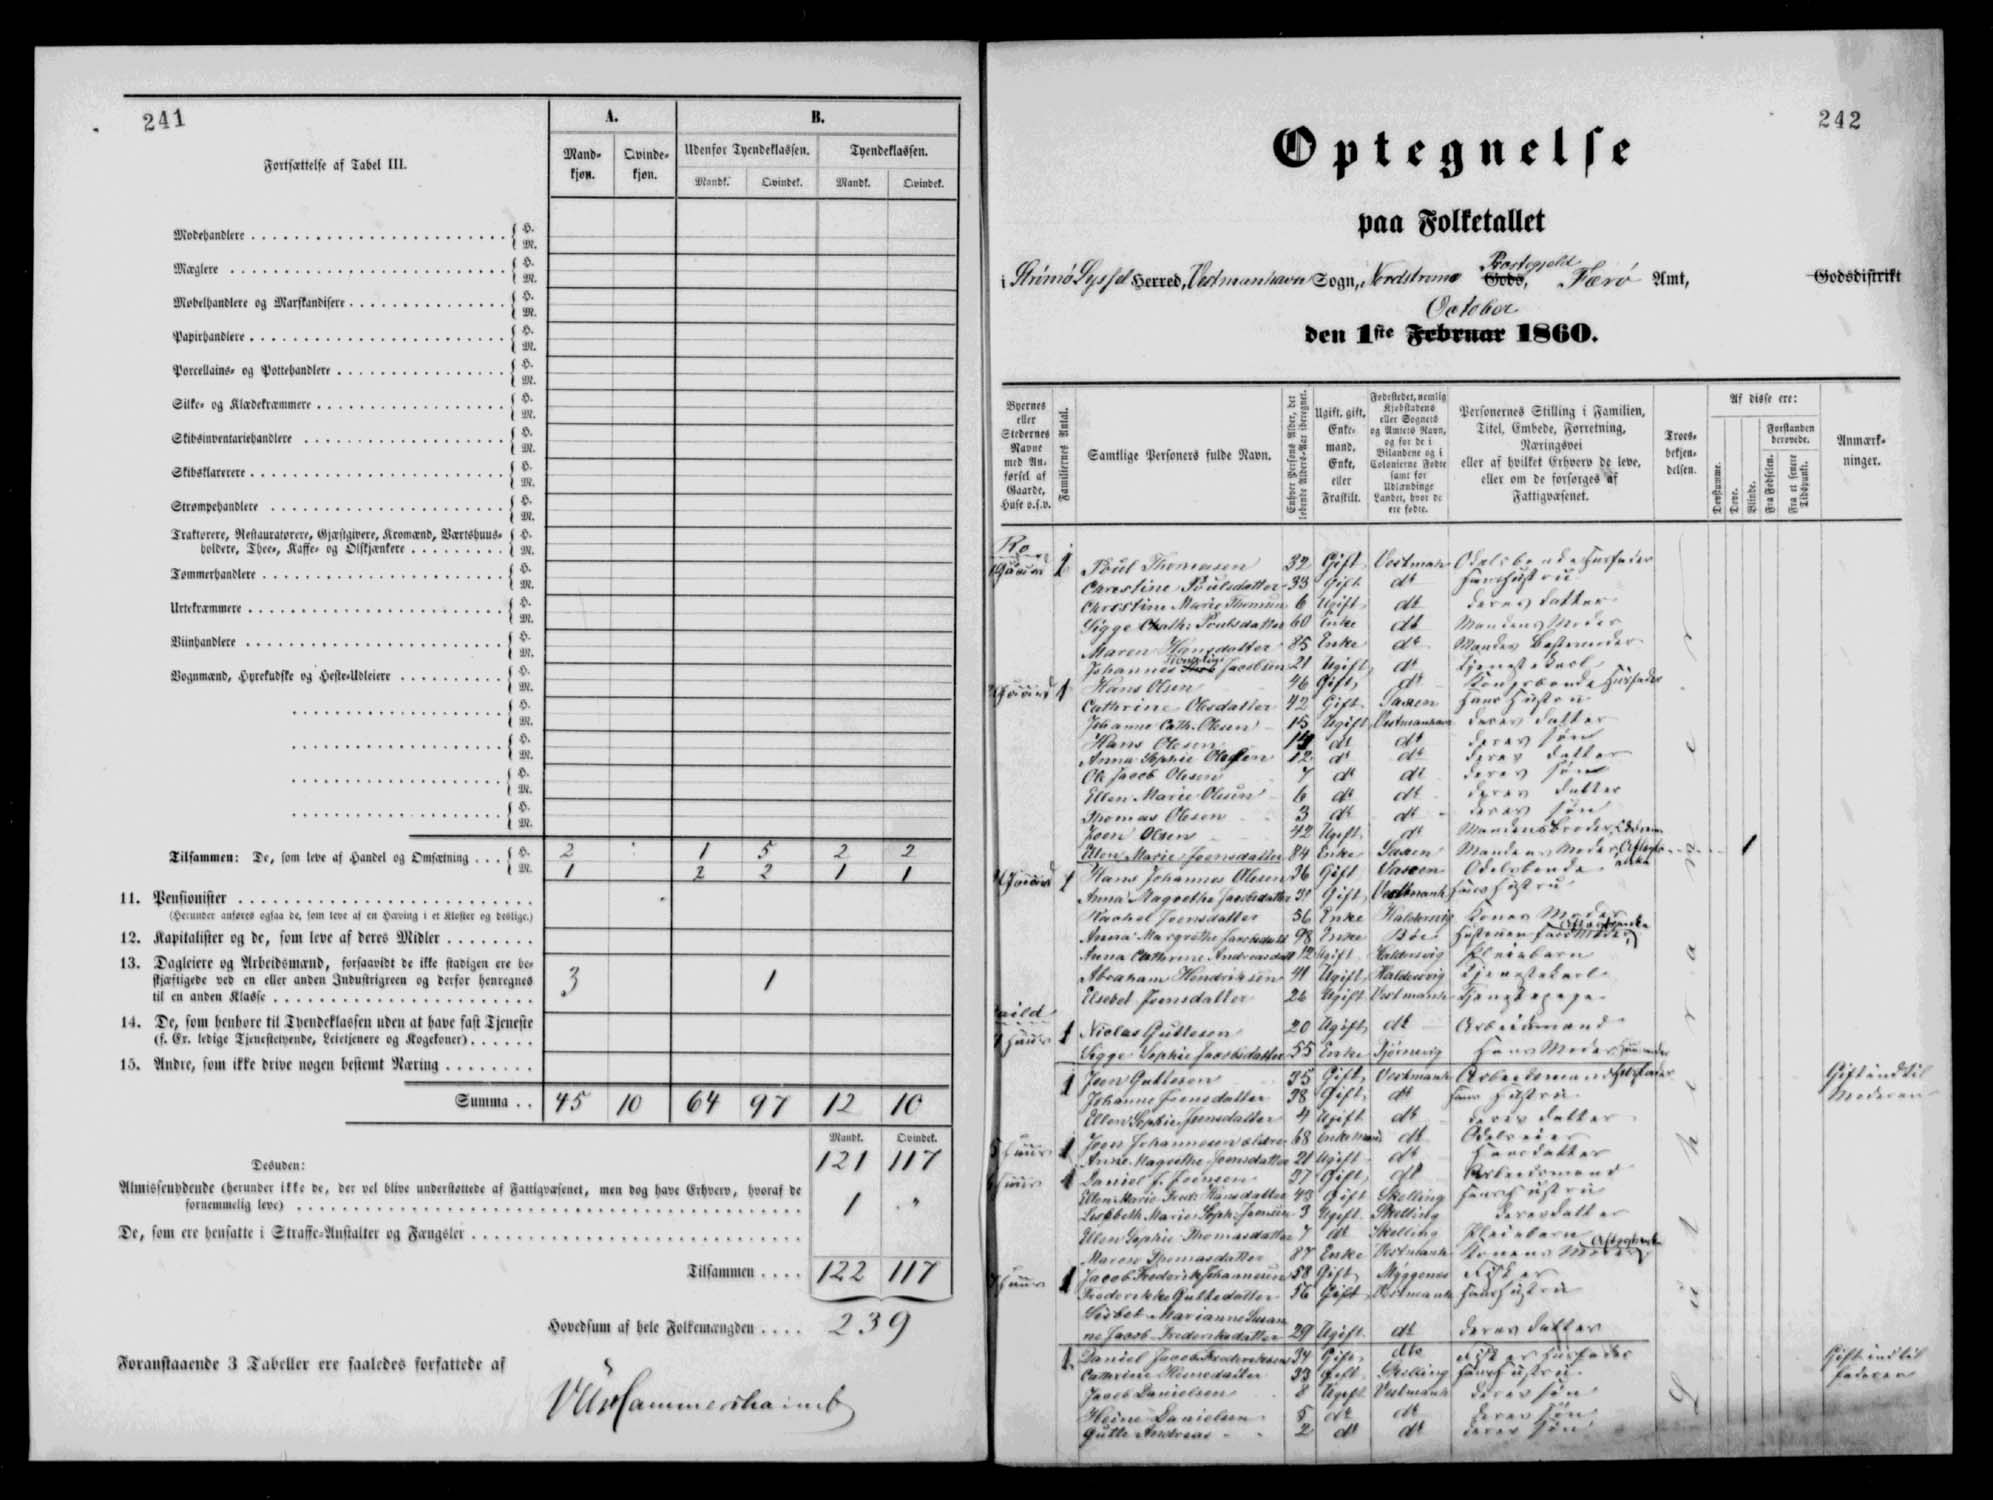 241
Fortsættelse af Tabel III.
A.
B.
Mandkjøn.
Qvindekjøn.
Udenfor Tyendeklassen.
Tyendeklassen.
Mandk.
Qvindek.
Mandk.
Qvindek.
Modehandlere { H. M.
Mæglere { H. M.
Møbelhandlere og Marskandisere { H. M.
Papirhandlere { H. M.
Porcellains- og Pottehandlere { H. M.
Silke- og Klædekræmmere { H. M.
Skibsinventariehandlere { H. M.
Skibsklarerere { H. M.
Strømpehandlere { H. M.
Traktører, Restauratører, Gjæstgivere, Kromænd, Værtshuus-
holdere, Thee-, Kaffe- og Ølskjænkere { H. M.
Tømmerhandlere { H. M.
Urtekræmmere { H. M.
Viinhandlere { H. M.
Vognmænd, Hyrekudske og Heste-Udleiere { H. M.
{ H. M.
{ H. M.
{ H. M.
{ H. M.
Tilsammen: De, som leve af Handel og Omsætning . . . { H. 2 1 5 2 2
M. 1 2 2 1 1
11. Pensionister
(Herunder anføres ogsaa de, som leve af en Hæving i et Kloster og deslige.)
12. Kapitalister og de, som leve af deres Midler
13. Dagleiere og Arbeidsmænd, forsaavidt de ikke stadigen ere be-
skjæftigede ved en eller anden Industrigreen og derfor henregnes
til en anden Klasse 3 1
14. De, som henhøre til Tyendeklassen uden at have fast Tjeneste
(f. Ex. ledige Tjenestetyende, Leietjenere og Kogekoner)
15. Andre, som ikke drive nogen bestemt Næring
Summa . . 45 10 64 97 12 10
Mandk. Qvindek.
121 117
Desuden:
Almissenydende (herunder ikke de, der vel blive understøttede af Fattigvæsenet, men dog have Erhverv, hvoraf de
fornemmelig leve) 1 "
De, som ere hensatte i Straffe-Anstalter og Fængsler
Tilsammen . . . . 122 117
Hovedsum af hele Folkemængden . . . . 239
Foranstaaende 3 Tabeller ere saaledes forfattede af
V U Hammershaimb
242
Optegnelse
paa Folketallet
Præstegjeld
i Strømø Syssel Herred, Vestmanhavn Sogn, Nordstrømø Gods, Færø Amt, Godsdistrikt
October
den 1ste Februar 1860.
Byernes eller Stedernes Navne med Anførsel af Gaarde, Huse o.s.v.
Familiernes Antal.
Samtlige Personers fulde Navn.
Enhver Persons Alder, det løbende Alders-Aar iberegnet.
Ugift, gift, Enkemand, Enke, eller Fraskilt.
Fødestedet, nemlig Kjøbstadens eller Sognets og Amtets Navn, og for de i Bilandene og i Colonierne Fødte samt for Udlændinge Landet, hvor de ere fødte.
Personernes Stilling i Familien, Titel, Embede, Forretning, Næringsvei eller af hvilket Erhverv de leve, eller om de forsørges af Fattigvæsenet.
Troesbekjendelsen.
Af disse ere:
Døvstumme.
Døve.
Blinde.
Forstanden berøvede.
Fra Fødselen.
Fra et senere Tidspunkt.
Anmærkninger.
1 Poul Thomasen 32 Gift Vestmanh Odelsbonde Huusfader
Christine Poulsdatter 33 Gift dt Hans Hustru
Christine Marie Thomsen 6 Ugift dt deres Datter
Sigge Cath: Poulsdatter 60 Enke dt Mandens Moder
Maren Hansdatter 85 Enke dt Mandens Bestemoder
Johannes Jacobsen 21 Ugift dt Tjenestekarl
1 Hans Olsen 46 Gift dt Kongsbonde Huusfader
Cathrine Olesdatter 42 Gift Saxen Hans Hustru
Johanne Cath. Olesen 15 Ugift Vestmanhavn deres Datter
Hans Olesen 14 dt dt deres Søn
Anna Sophie Olesen 12 dt dt deres Datter
Ole Jacob Olesen 7 dt dt deres Søn
Ellen Marie Olesen 6 dt dt deres Datter
Thomas Olesen 3 dt dt deres Søn
Joen Olsen 42 Ugift dt Mandens Broder
Ellen Marie Joensdatter 84 Enke Saxen Mandens Moder 1
1 Hans Johannes Olesen 36 Gift Saxen Odelsbonde
Anna Magrethe Jacobsdatter 31 Gift Vestmanh Hans Hustru
Rachel Joensdatter 56 Enke Haldersvig Konens Moder
Anna Margrethe Jacobsdatt 98 Enke
Anna Cathrine Andreasdatt 12 Ugift Haldersvig Pleiebarn
Abraham Hendriksen 41 Ugift Haldersvig Tjenestekarl
Elsebet Joensdatter 26 Ugift Vestmanh Tjenestepige
1 Nicolas Guttesen 20 Ugift dt Arbeidsmand
Sigge Sophie Jacobsdatter 55 Enke Tjørnevig Hans Moder
1 Joen Guttesen 35 Gift Vestmanh Arbeidsmand Huusfader Gift ind til Moderen
Johanne Joensdatter 38 Gift dt Hans Hustru
Ellen Sophie Joensdatter 4 Ugift dt deres Datter
1 Joen Johannesen ældre 68 Enkemand dt Odelseier
Anne Magrethe Joensdatter 21 Ugift dt Hans Datter
1 Daniel J. Joensen 37 Gift dt Arbeidsmand
Ellen Marie Fred: Hansdatter 43 Gift Skelling Hans Hustru
Lisbeth Marie Soph: Joensen 3 Ugift Skelling deres Datter
Ellen Sophie Thomasdatter 7 dt Skelling Pleiebarn
Maren Thomasdatter 87 Enke Vestmanh Konens Moder
1 Jacob Frederik Johannesen 58 Gift Myggenes Fisker
Frederikke Guttesdatter 56 Gift Vestmanh Hans Hustru
Lisbet Marianne Susan
ne Jacob-Frederiksdatter 29 Ugift dt deres Datter
1 Daniel Jacob Frederiksen 34 Gift dto Fisker Huusfader Gift ind til Faderen
Cathrine Heinesdatter 33 Gift Skelling Hans Hustru
Jacob Danielsen 8 Ugift Vestmanh deres Søn
Heine Danielsen 5 dt dt deres Søn
Gutte Andreas 2 dt dt deres Søn